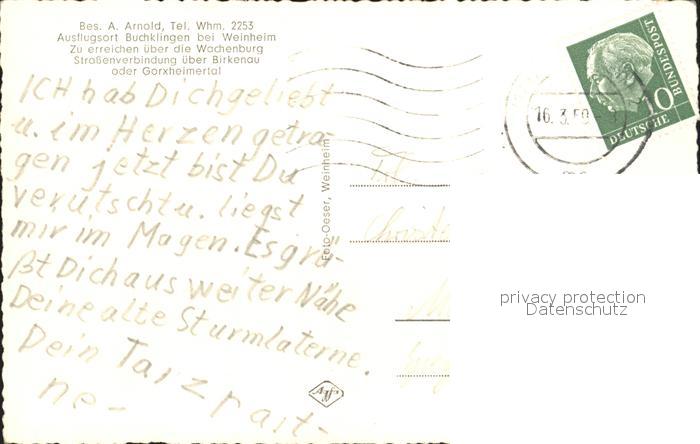 Bes. A. Arnold, Tel. Whm. 2253
Ausflugsort Buchklingen bei Weinheim
Zu erreichen über die Wachenburg
Straßenverbindung über Birkenau
oder Gorxheimertal
ICH hab Dich geliebt
u. im Herzen getra-
gen jetzt bist Du
verutscht u. liegst
mir im Magen. Es grü-
ßt Dich aus weiter Nähe
Deine alte Sturmlaterne.
Dein Tarzpait-
ne-
Foto-Oeser, Weinheim
Agfa
16. 3. 59
10
DEUTSCHE
BUNDESPOST
privacy protection
Datenschutz